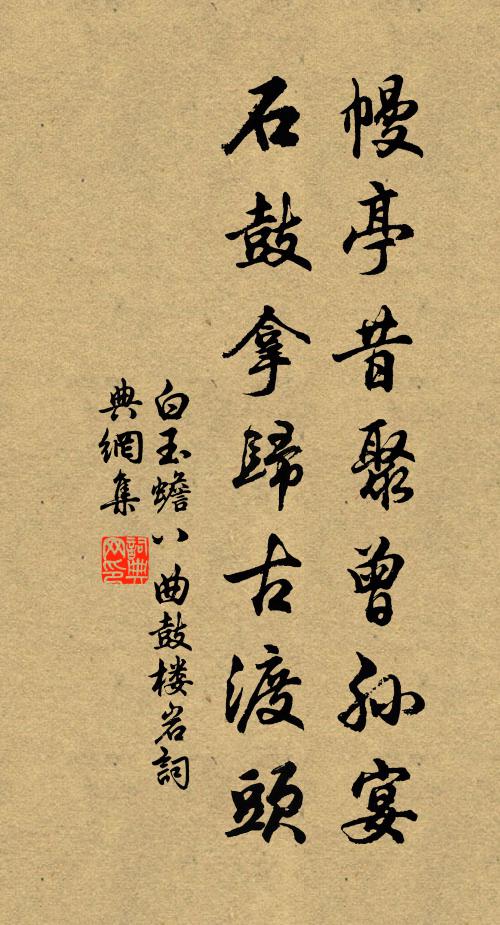 幔亭昔聚曾孙宴
石鼓拿歸古渡頭
白玉蟾八曲鼓楼岩詞
典網集
詞典
网印